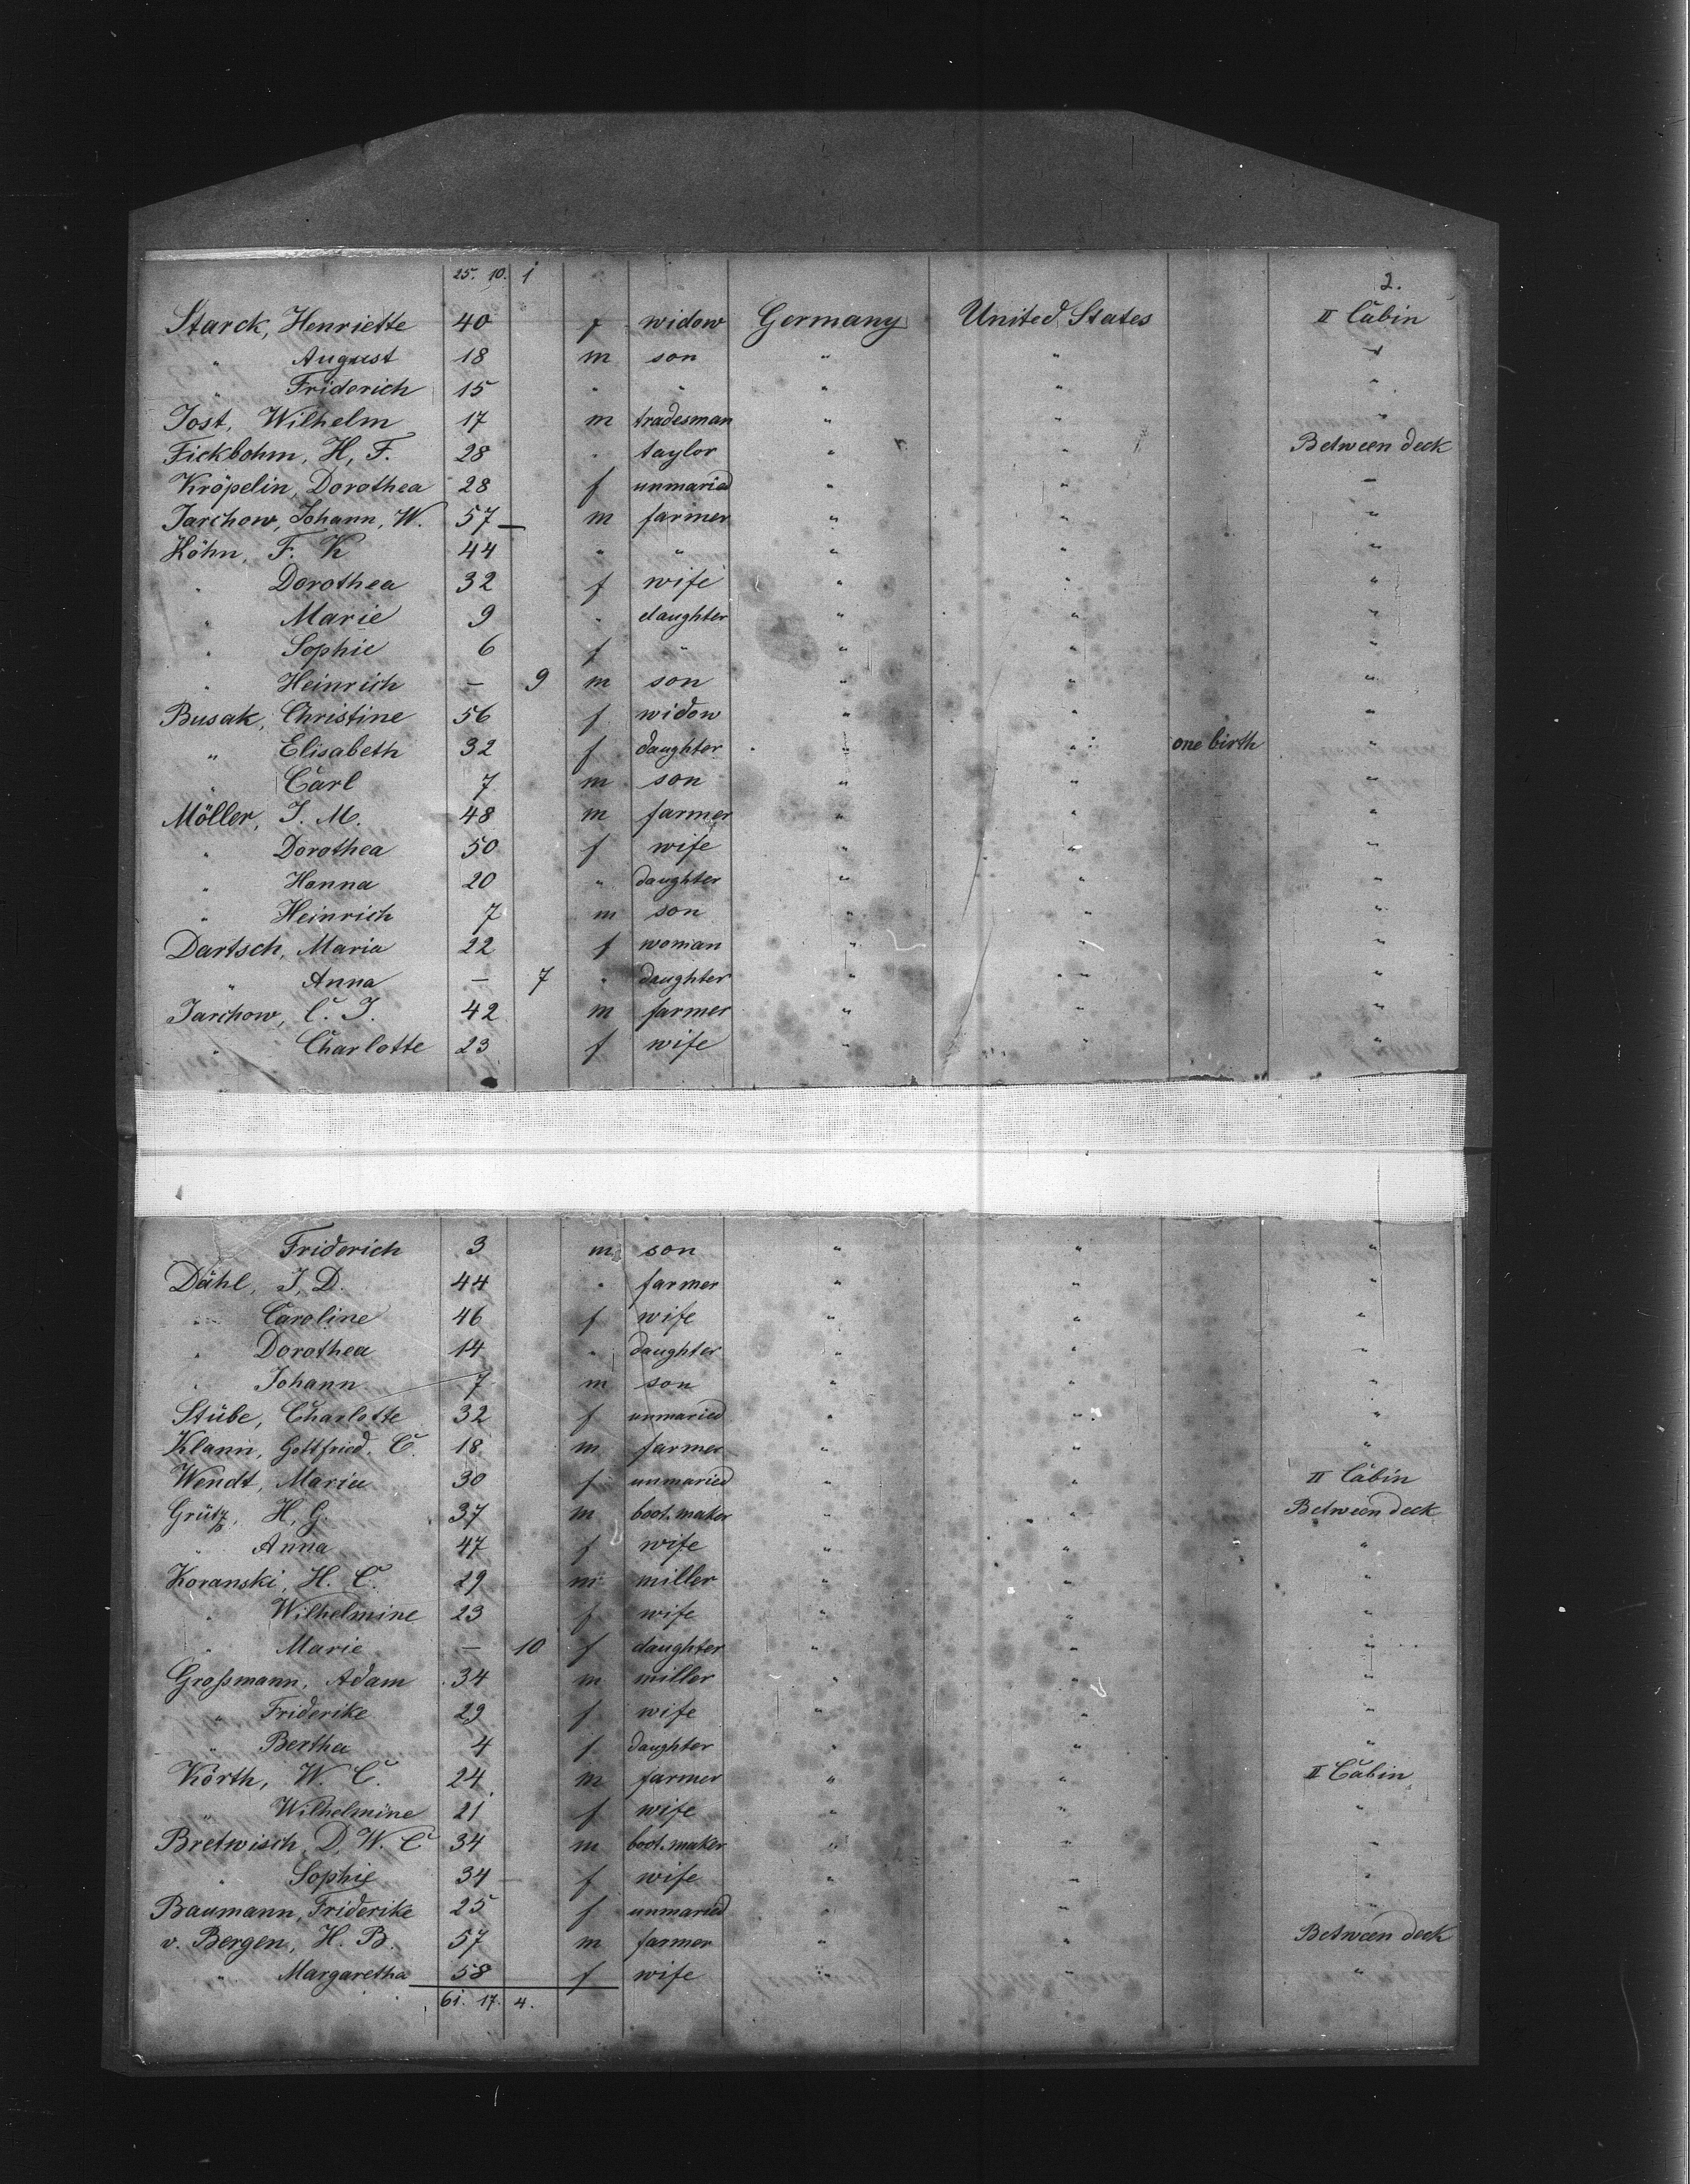 25. 10. 1
2.
Starck, Henriette 40 f widow Germany United States II Cabin
" August 18 m son " " "
" Friderich 15 " " " " "
Jost, Wilhelm 17 m tradesman " " "
Fickbohm, H, F. 28 " taylor " " Between deck
Kröpelin, Dorothea 28 f unmaried " " "
Jarchow, Johann, W. 57 m farmer " " "
Höhn, F. K 44 " " " " "
" Dorothea 32 f wife " " "
" Marie 9 " daughter " " "
" Sophie 6 f " " " "
" Heinrich — 9 m son " " "
Busak, Christine 56 f widow " " "
" Elisabeth 32 f daughter " " one birth "
" Carl 7 m son " " "
Möller, J. M. 48 m farmer " " "
" Dorothea 50 f wife " " "
" Hanna 20 " daughter " " "
" Heinrich 7 m son " " "
Dartsch, Maria 22 f woman " " "
" Anna — 7 " daughter " " "
Jarchow, C. J. 42 m farmer " " "
" Charlotte 23 f wife " " "
Friderich 3 m son " " "
Dähl, J, D. 44 " farmer " " "
" Caroline 46 f wife " " "
" Dorothea 14 " daughter " " "
" Johann 7 m son " " "
Stübe, Charlotte 32 f unmaried " " "
Klann, Gottfried. C. 18 m farmer " " "
Wendt, Maria 30 f unmaried " " II Cabin
Grütz, H, G. 37 m boot.maker " " Between deck
" Anna 47 f wife " " "
Koranski, H. C. 29 m miller " " "
" Wilhelmine 23 f wife " " "
" Marie — 10 f daughter " " "
Großmann, Adam 34 m miller " " "
" Friderike 29 f wife " " "
" Bertha 4 f daughter " " "
Körth, W. C. 24 m farmer " " II Cabin
" Wilhelmine 21 f wife " " "
Bretwisch, D, W. C 34 m boot.maker " " "
" Sophie 34 f wife " " "
Baumann, Friderike 25 f unmaried " " "
v. Bergen, H. B. 57 m farmer " " Between deck
" Margaretha 58 f wife " " "
61. 17. 4.